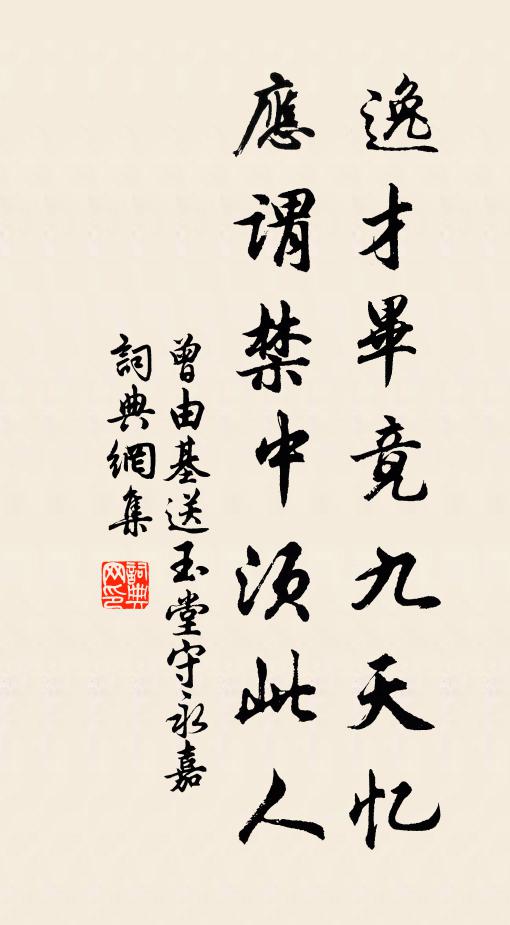 逸才畢竟九天忆
應谓禁中须此人
曾由基送玉堂守永嘉
詞典網集
詞典网印